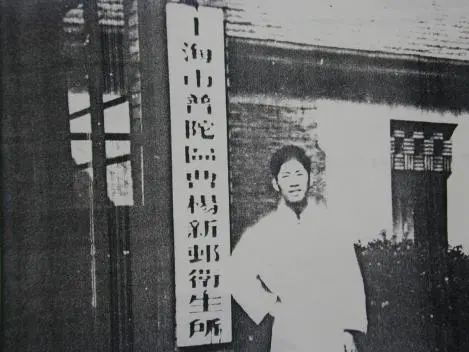 上海市普陀區曹楊新邨衛生所